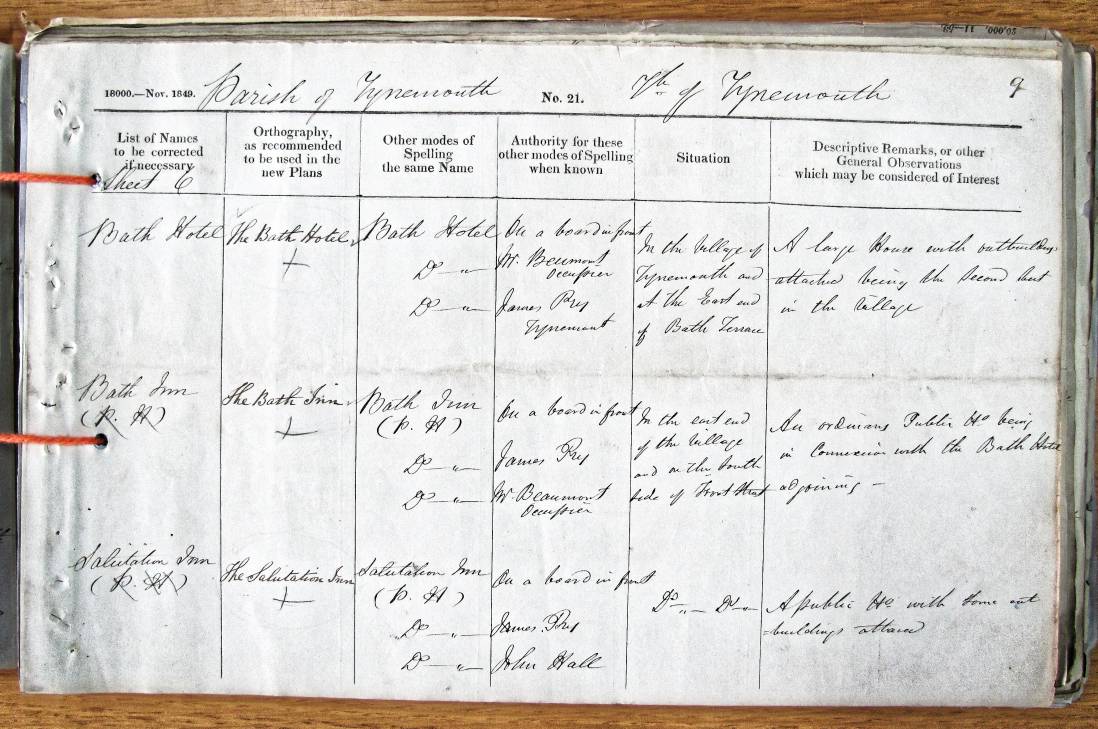 18000.—Nov. 1849. Parish of Tynemouth No. 21. of Tynemouth 9
List of Names
to be corrected
if necessary
Orthography,
as recommended
to be used in the
new Plans
Other modes of
Spelling
the same Name
Authority for these
other modes of Spelling
when known
Situation
Descriptive Remarks, or other
General Observations
which may be considered of Interest
Sheet 6
Bath Hotel
The Bath Hotel
Bath Hotel
Do „
Do „
On a board in front
Mr Beaumont
Occupier
James
Tynemouth
In the Village of
Tynemouth and
at the East end
of Bath Terrace
A large House with outbuildings
attached being the Second best
in the Village
Bath Inn
(P. H)
The Bath Inn
Bath Inn
(P. H)
Do „
Do „
On a board in front
James
Mr Beaumont
Occupier
In the east end
of the Village
and on the South
side of Front Street
An ordinary Public Ho being
in Connexion with the Bath Hotel
adjoining —
Salutation Inn
(P. H)
The Salutation Inn
Salutation Inn
(P. H)
Do „
Do „
On a board in front
James
John Hall
Do „ Do „
A public Ho with some out
buildings